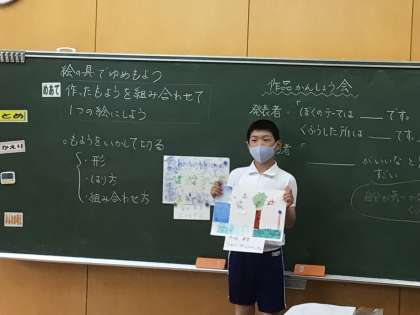 絵の具でゆめもよう
めあて
作ったもようを組み合わせて
1つの絵にしよう
。もようをいかして切る
・形
・はり方
・組み合わせ方
作品かんしょう会
発表者・「ぼくのテーマは＿＿です。
くふうした所は＿＿です。
＿＿がいいなと
すごい